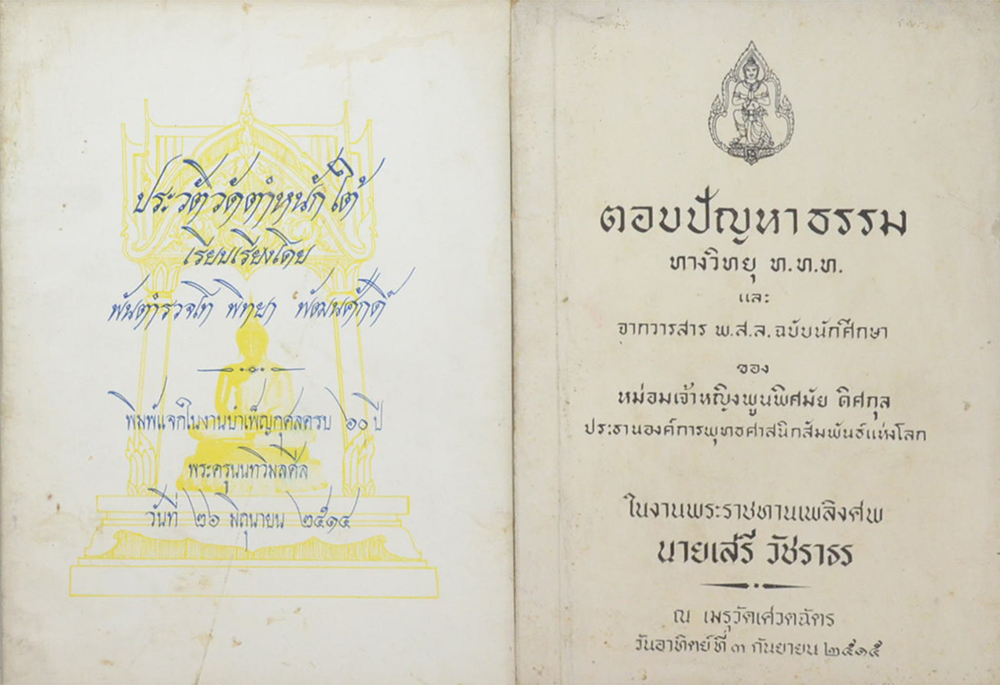 ประวัติวัดตำหนักใต้
เรียบเรียงโดย
พันตำรวจโท พิทยา พัฒนศักดิ์
พิมพ์แจกในงานบำเพ็ญกุศลครบ ๖๐ ปี
พระครูนนทวิมลศีล
วันที่ ๒๖ มิถุนายน ๒๕๑๔
ตอบปัญหาธรรม
ทางวิทยุ ท.ท.ท.
และ
จากวารสาร พ.ส.ล. ฉบับนักศึกษา
ของ
หม่อมเจ้าหญิงพูนพิศมัย ดิศกุล
ประธานองค์การพุทธศาสนิกสัมพันธ์แห่งโลก
ในงานพระราชทานเพลิงศพ
นายเสรี วัชราธร
ณ เมรุวัดเศวตฉัตร
วันอาทิตย์ที่ ๓ กันยายน ๒๕๑๕